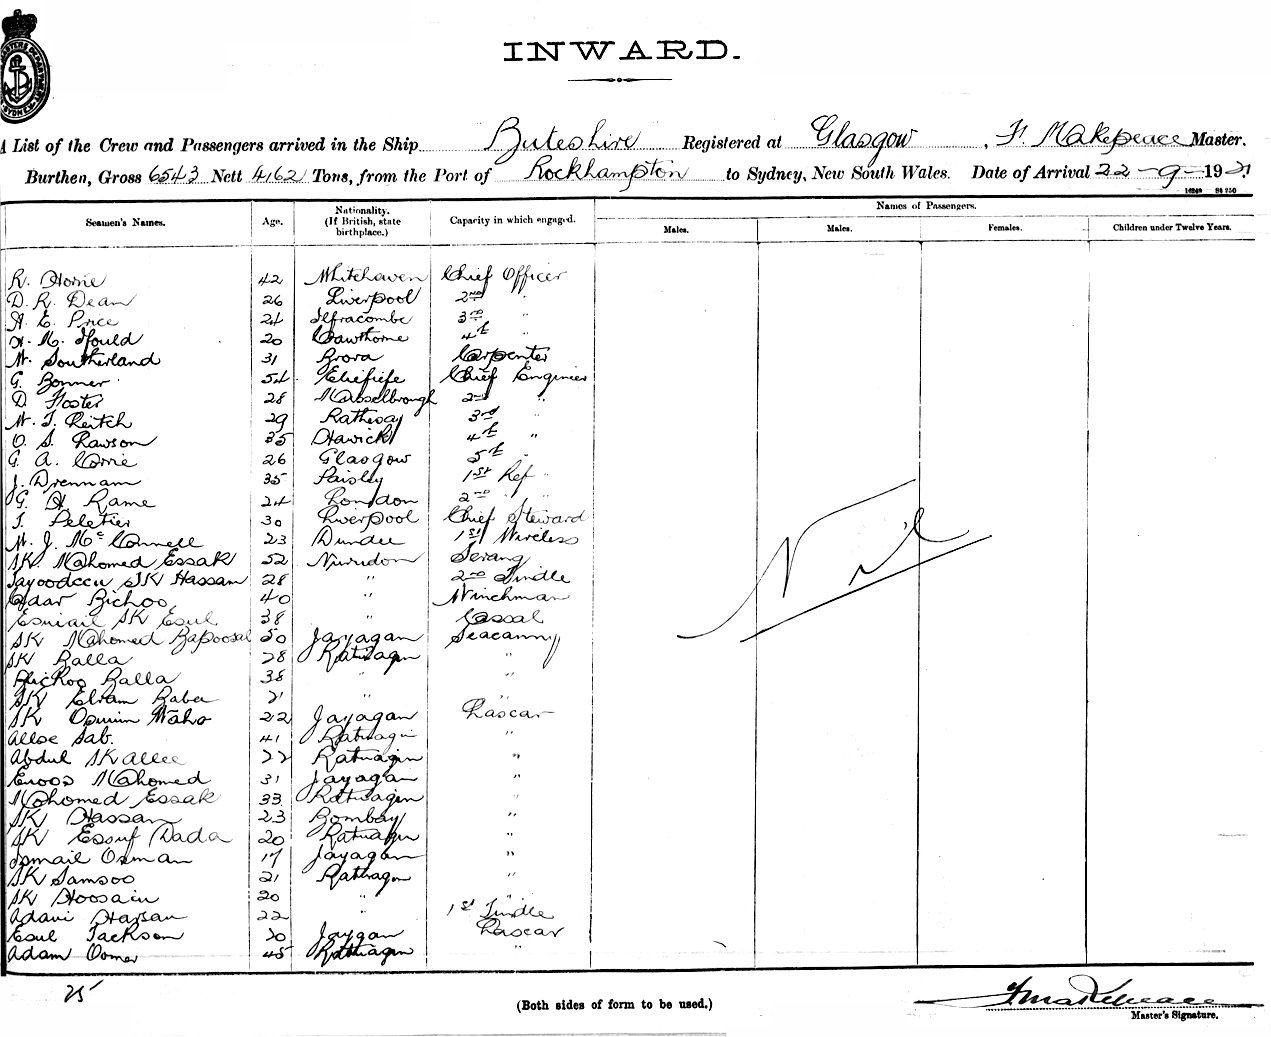 INWARD.
A List of the Crew and Passengers arrived in the Ship Buteshire Registered at Glasgow, F. Makepeace Master.
Burthen, Gross 6543 Nett 4162 Tons, from the Port of Rockhampton to Sydney, New South Wales. Date of Arrival 22-9-1921
Names of Passengers.
Seamen's Names. Age. Nationality. (If British, state birthplace.) Capacity in which engaged. Males. Males. Females. Children under Twelve Years.
R. Horne 42 Whitehaven Chief Officer
D. R. Dean 26 Liverpool 2nd "
H. E. Price 24 Ilfracombe 3rd "
H. M. Ifould 20 Cawthorne 4th
W. Southerland 31 Brora Carpenter
G. Bonner 54 Chief Engineer
D. Foster 28 Musselbrough 2nd "
W. T. Reitch 29 Rathesay 3rd "
O. S. Lawson 35 Hawick 4th "
G. A. Corrie 26 Glasgow 5th "
J. Drennam 35 Paisley 1st Ref "
G. H. Rame 24 London 2nd " "
T. Peletier 30 Liverpool Chief Steward
W. J. McConnell 23 Dundee 1st Wireless
SK Mahomed Essak 52 Serang
SK Hassan 28 " 2nd Tindle
Bichoo 40 " Winchman
Esmail SK Esul 38 " Cassal
SK Mahomed Bapoosal 50 Jayagan Seacunny
SK Balla 28 Ratnagin "
Balla 38 " "
SK Baba 21 " "
SK 22 Jayagan Lascar
Alloe Sab. 41 Ratnagin "
Abdul SK Allee 22 Ratnagin "
Enoos Mahomed 31 Jayagan "
Mohomed Essak 33 Ratnagin "
SK Hassan 23 Bombay "
SK Essuf Dada 20 Ratnagin "
Ismail Osman 17 Jayagan "
SK Samsoo 21 Ratnagin "
SK Hoosain 20 " "
Adam Hassan 22 " 1st Tindle
Esul Jackson 20 Jaygan Lascar
Adam Oomer 45 Ratnagin "
Nil
(Both sides of form to be used.)
F Makepeace
Master's Signature.